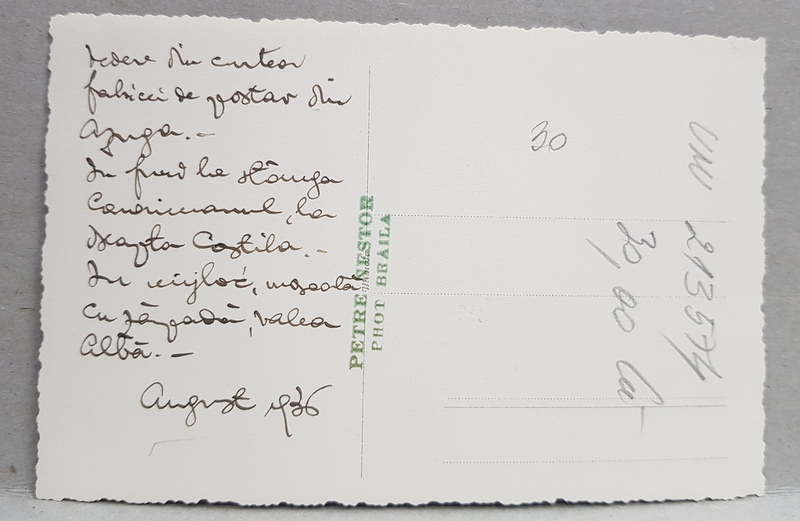 Vedere din curtea
fabricei de postav din
Azuga. –
În fund la stânga
Caraimanul, la
dreapta Costila. –
În mijloc,
cu zăpadă, valea
Albă. –
August 1936
PETRE NESTOR
PHOT BRAILA
30
213574
30,00 lei